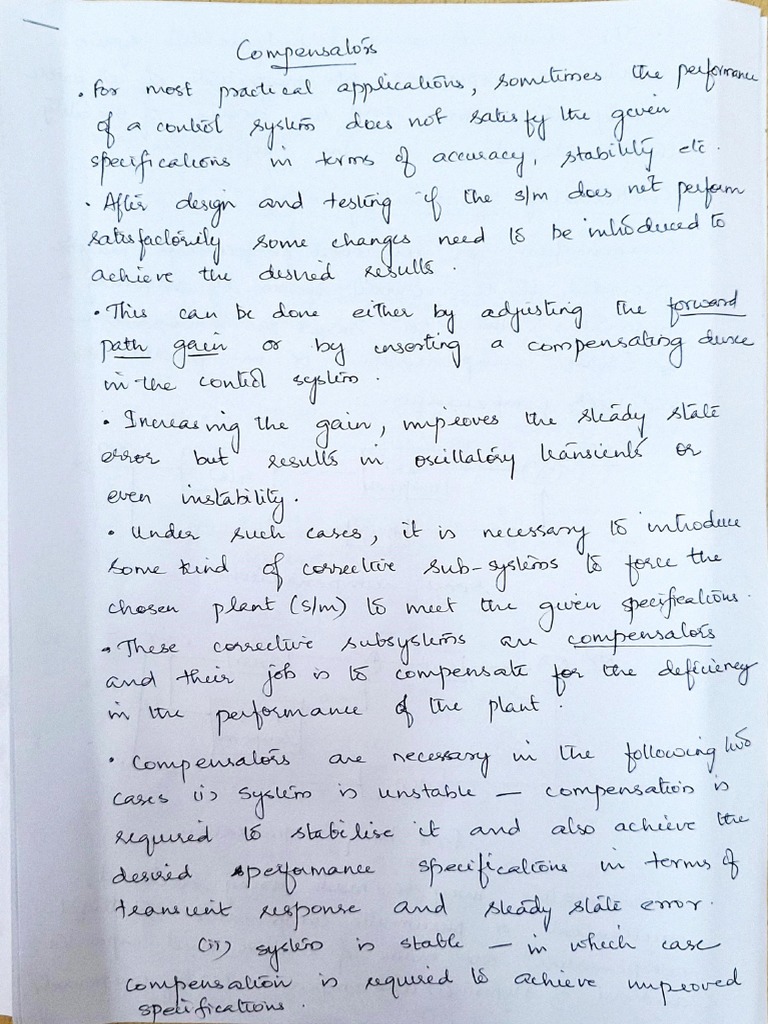 Compensators
• For most practical applications, sometimes the performance
of a control system does not satisfy the given
specifications in terms of accuracy, stability etc.
• After design and testing if the s/m does not perform
satisfactorily some changes need to be introduced to
achieve the desired results.
• This can be done either by adjusting the forward
path gain or by inserting a compensating device
in the control system.
• Increasing the gain, improves the steady state
error but results in oscillatory transients or
even instability.
• Under such cases, it is necessary to introduce
some kind of corrective sub-systems to force the
chosen plant (s/m) to meet the given specifications.
• These corrective subsystems are compensators
and their job is to compensate for the deficiency
in the performance of the plant.
• Compensators are necessary in the following two
cases (i) system is unstable — compensation is
required to stabilise it and also achieve the
desired performance specifications in terms of
transient response and steady state error.
(ii) system is stable — in which case
compensation is required to achieve improved
specifications.